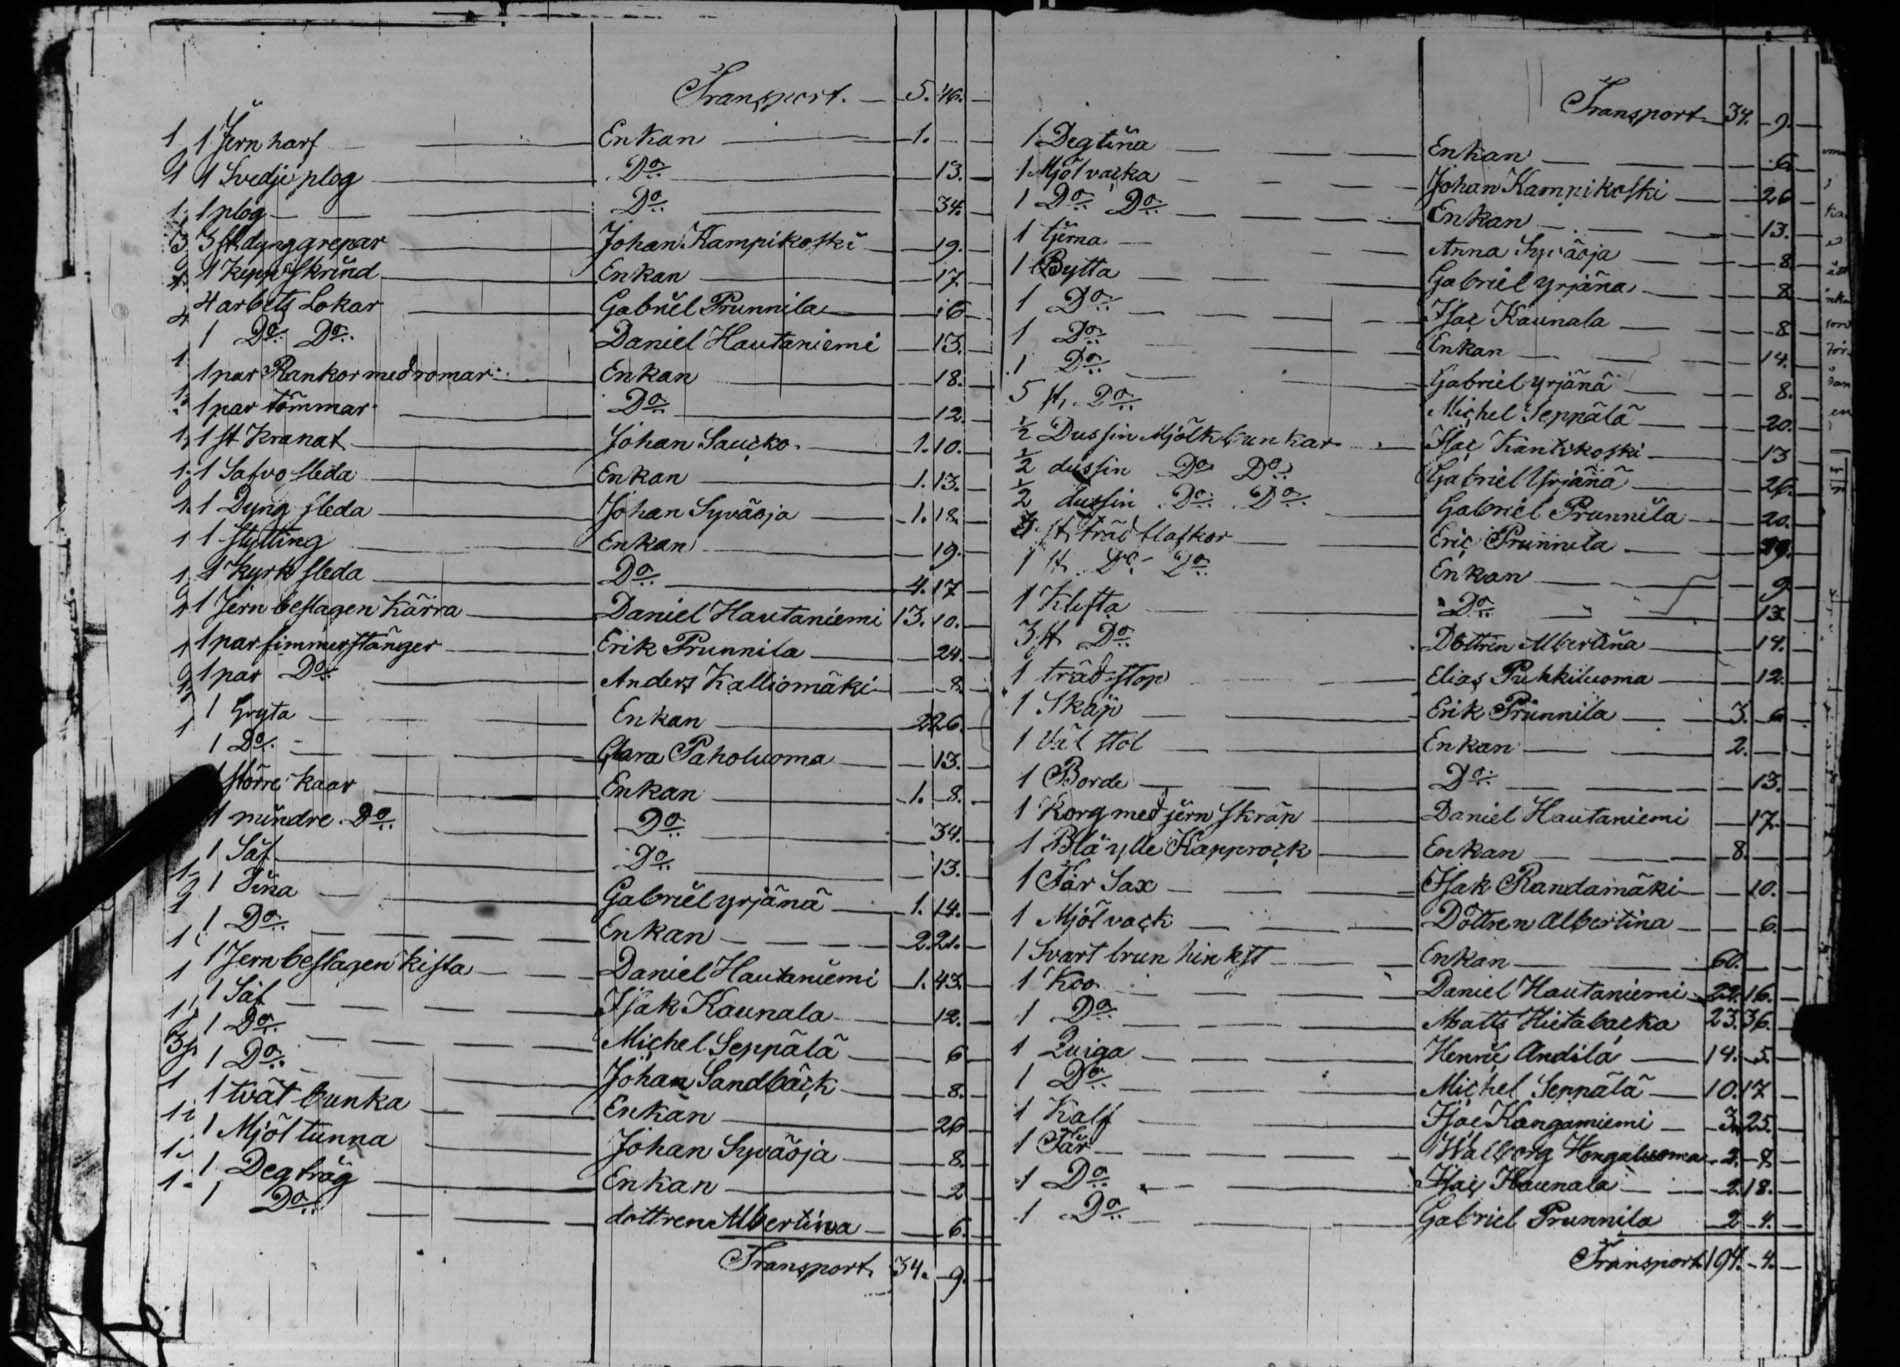 Transport. 5. 46.
1 Jern harf Enkan 1.
1 Svedje plog Do 13.
1 plog Do 34.
3 st. dyng grepar Johan Kampikoski 19.
1 Kipp skrind Enkan 17.
4 arbets Lokar Gabriel Prunnila 16
1 Do Do Daniel Hautaniemi 13.
1 par Rankor med romar Enkan 18.
1 par tömmar Do 12.
1 st Kranat Johan Saucko 1. 10.
1 Safvo sleda Enkan 1. 13.
1 Dyng sleda Johan Syväoja 1. 18.
1 stytting Enkan 19.
1 Kyrk sleda Do 4. 17
1 Jern beslagen Kärra Daniel Hautaniemi 13. 10.
1 par timmer stänger Erik Prunnila 24.
1 par Do Anders Kalliomäki 8.
1 Gryta Enkan 2 26.
1 Do Clara Paholuoma 13.
större kaar Enkan 1. 8.
1 mindre Do Do 34.
1 Säf Do 13.
1 Tina Gabriel Yrjänä 1. 14.
1 Do Enkan 2. 21.
1 Jern beslagen kista Daniel Hautaniemi 1. 43.
1 Säf Isak Kaunala 12.
1 Do Michel Seppälä 6
1 Do Johan Sandbäck 8.
1 tvät bunka Enkan 26
1 Mjöl tunna Johan Syväoja 8.
1 Deg tråg Enkan 2
1 Do dottren Albertina 6.
Transport 34. 9.
Transport 34. 9.
1 Deg tina Enkan 6.
1 Mjöl vacka Johan Kampikoski 26
1 Do Do Enkan 13.
1 tjima Anna Syväoja 8.
1 Bytta Gabriel Yrjänä 8
1 Do Isac Kaunala 8
1 Do Enkan 14.
1 Do Gabriel Yrjänä 8.
5 st. Do Michel Seppälä 20.
1/2 Dussin Mjölk bunkar Isac Kantikoski 13
1/2 dussin Do Do Gabriel Yrjänä 26.
1/2 dussin Do Do Gabriel Prunnila 20.
st. träd flaskor Eric Prunnila 19.
1 st. Do Do Enkan 9
1 Klifta Do 13.
3 st Do Dottren Albertina 14.
1 träd stop Elias Puhkiluoma 12.
1 Skåp Erik Prunnila 3. 6
1 Väf stol Enkan 2.
1 Borde Do 13.
1 Korg med jern skrän Daniel Hautaniemi 17.
1 Blå ylle Kapprock Enkan 8.
1 Får Sax Isak Randamäki 10.
1 Mjöl vack Dottren Albertina 6.
1 Svart brun hinkst Enkan 60.
1 Koo Daniel Hautaniemi 22. 16.
1 Do Matts Hietabacka 23. 36.
1 Quiga Henric Andila 14. 5.
1 Do Michel Seppälä 10. 17
1 Kalf Isac Kangamiemi 3. 25.
1 Får Walborg Hongaluoma 2. 8.
1 Do Isac Kaunala 2. 18.
1 Do Gabriel Prunnila 2 4.
Transport 194. 4.